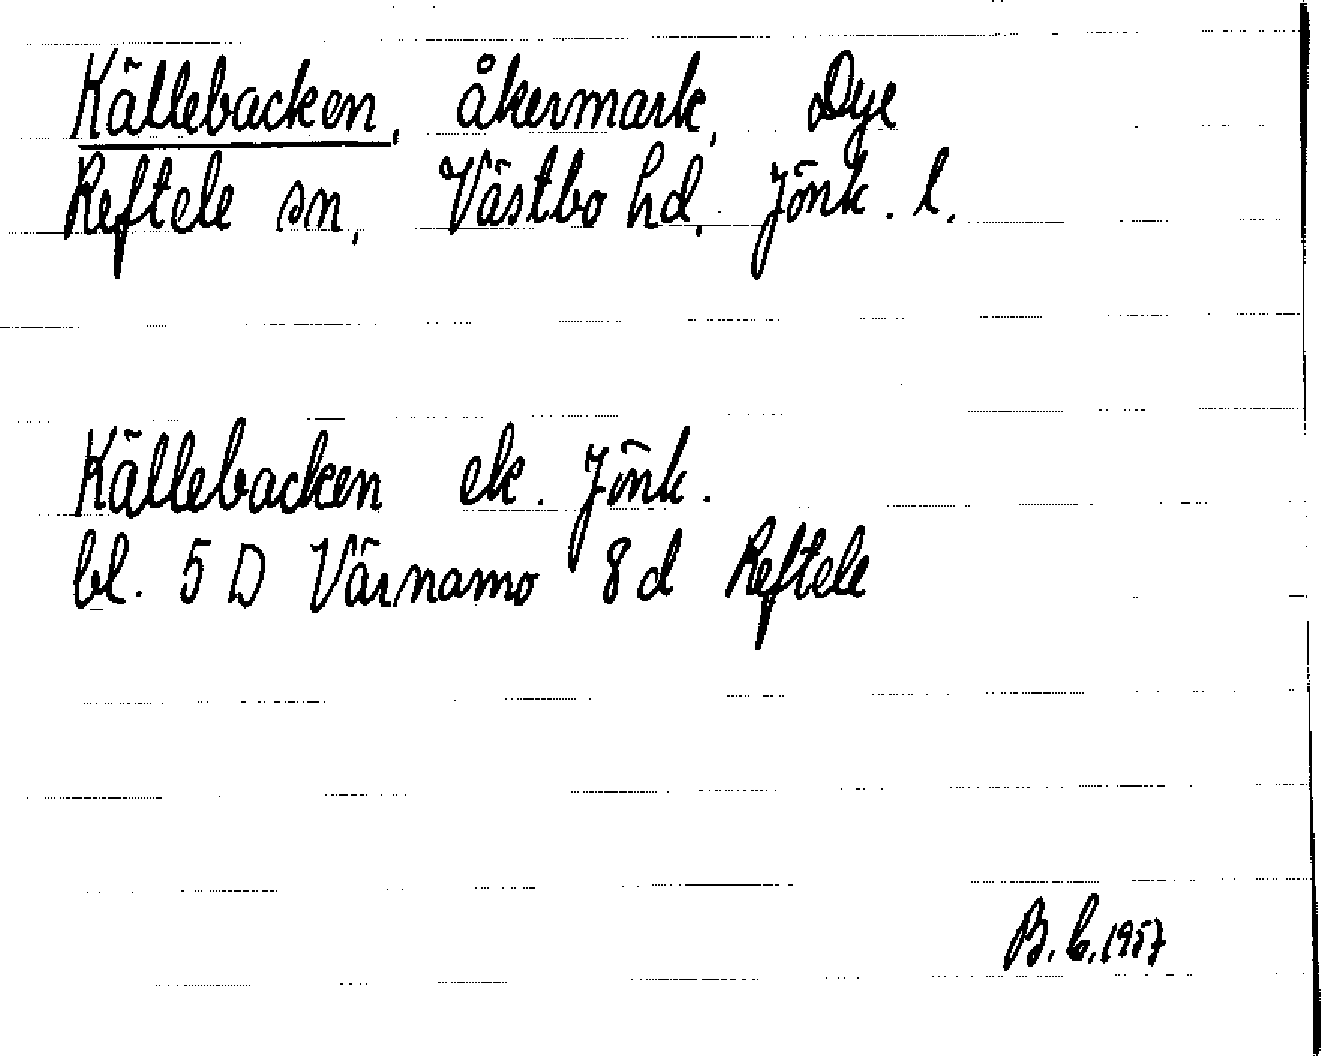 Källebacken, åkermark, Dye
Reftele sn, Västbo hd, Jönk. l.
Källebacken ek. Jönk.
bl. 5 D Värnamo 8 d Reftele
B.C. 1957